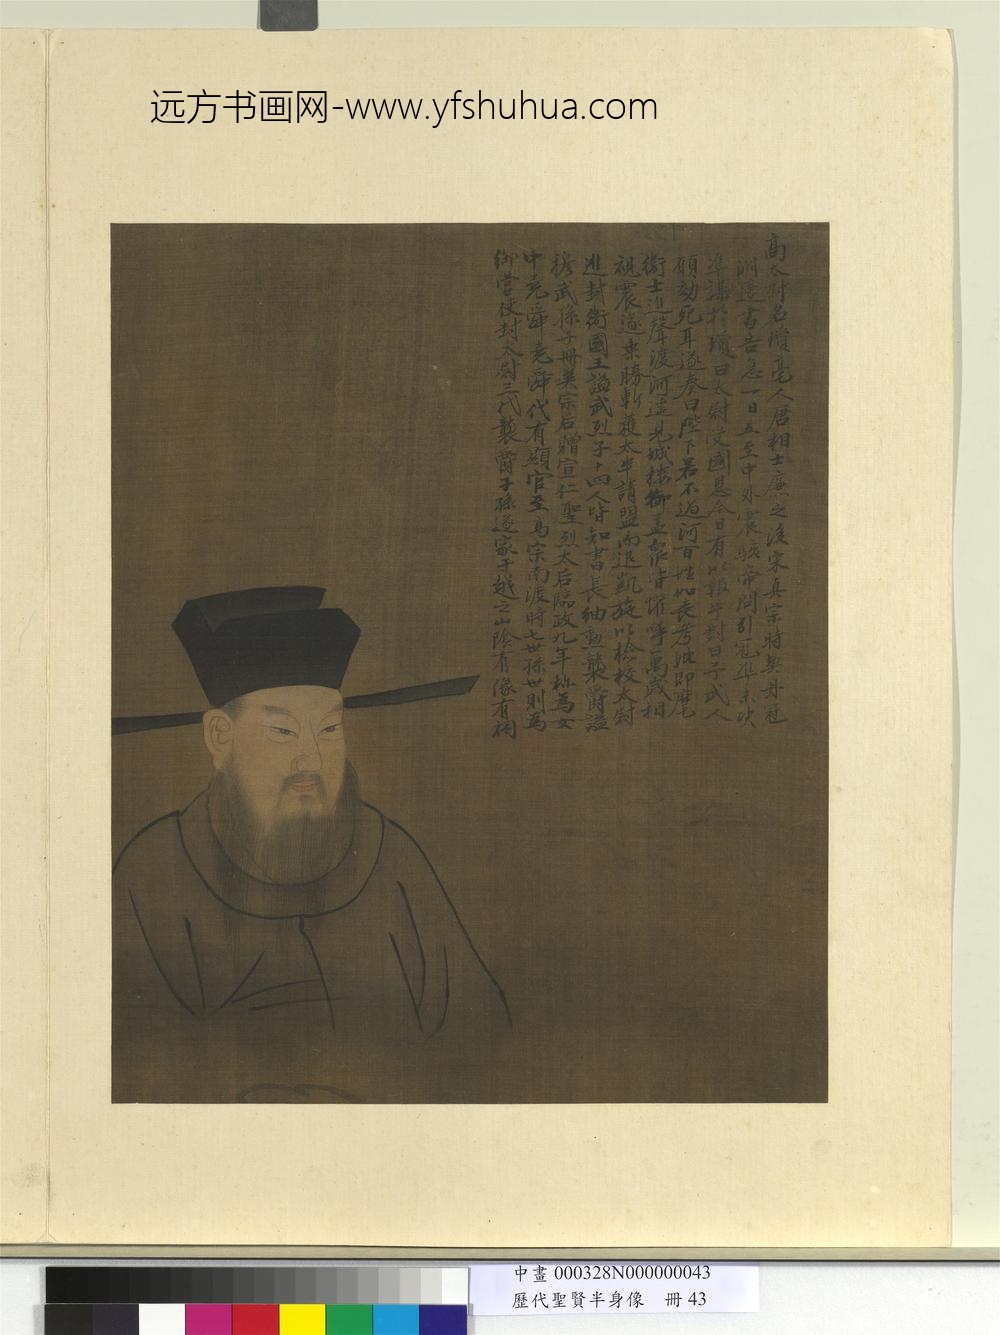 远方书画网-www.yfshuhua.com
高太尉名瓊亳人唐相士廉之後宋真宗時契丹冠
澶邊書告急一日五至中外震駭帝問引冦準未决
準謀於瓊曰太尉受國恩今日有以報乎對曰予武人
願効死耳遂奏曰陛下若不過河百姓如喪考妣即麾
衞士進聲渡河遠見城樓御盖衆皆懽呼萬歲相
視震遂乘勝斬獲太半請盟而退凱旋以檢校太尉
進封衞國王謚武烈子十四人皆知書長紬勲襲爵謚
穆武孫子冊英宗后贈宣仁聖烈太后臨政九年称為女
中堯舜堯舜代有顯官至髙宗南渡時七世孫世則為
御營使封太尉三代襲爵子孫遂家于越之山陰有像有祠
中畫 000328N000000043
歷代聖賢半身像 冊 43